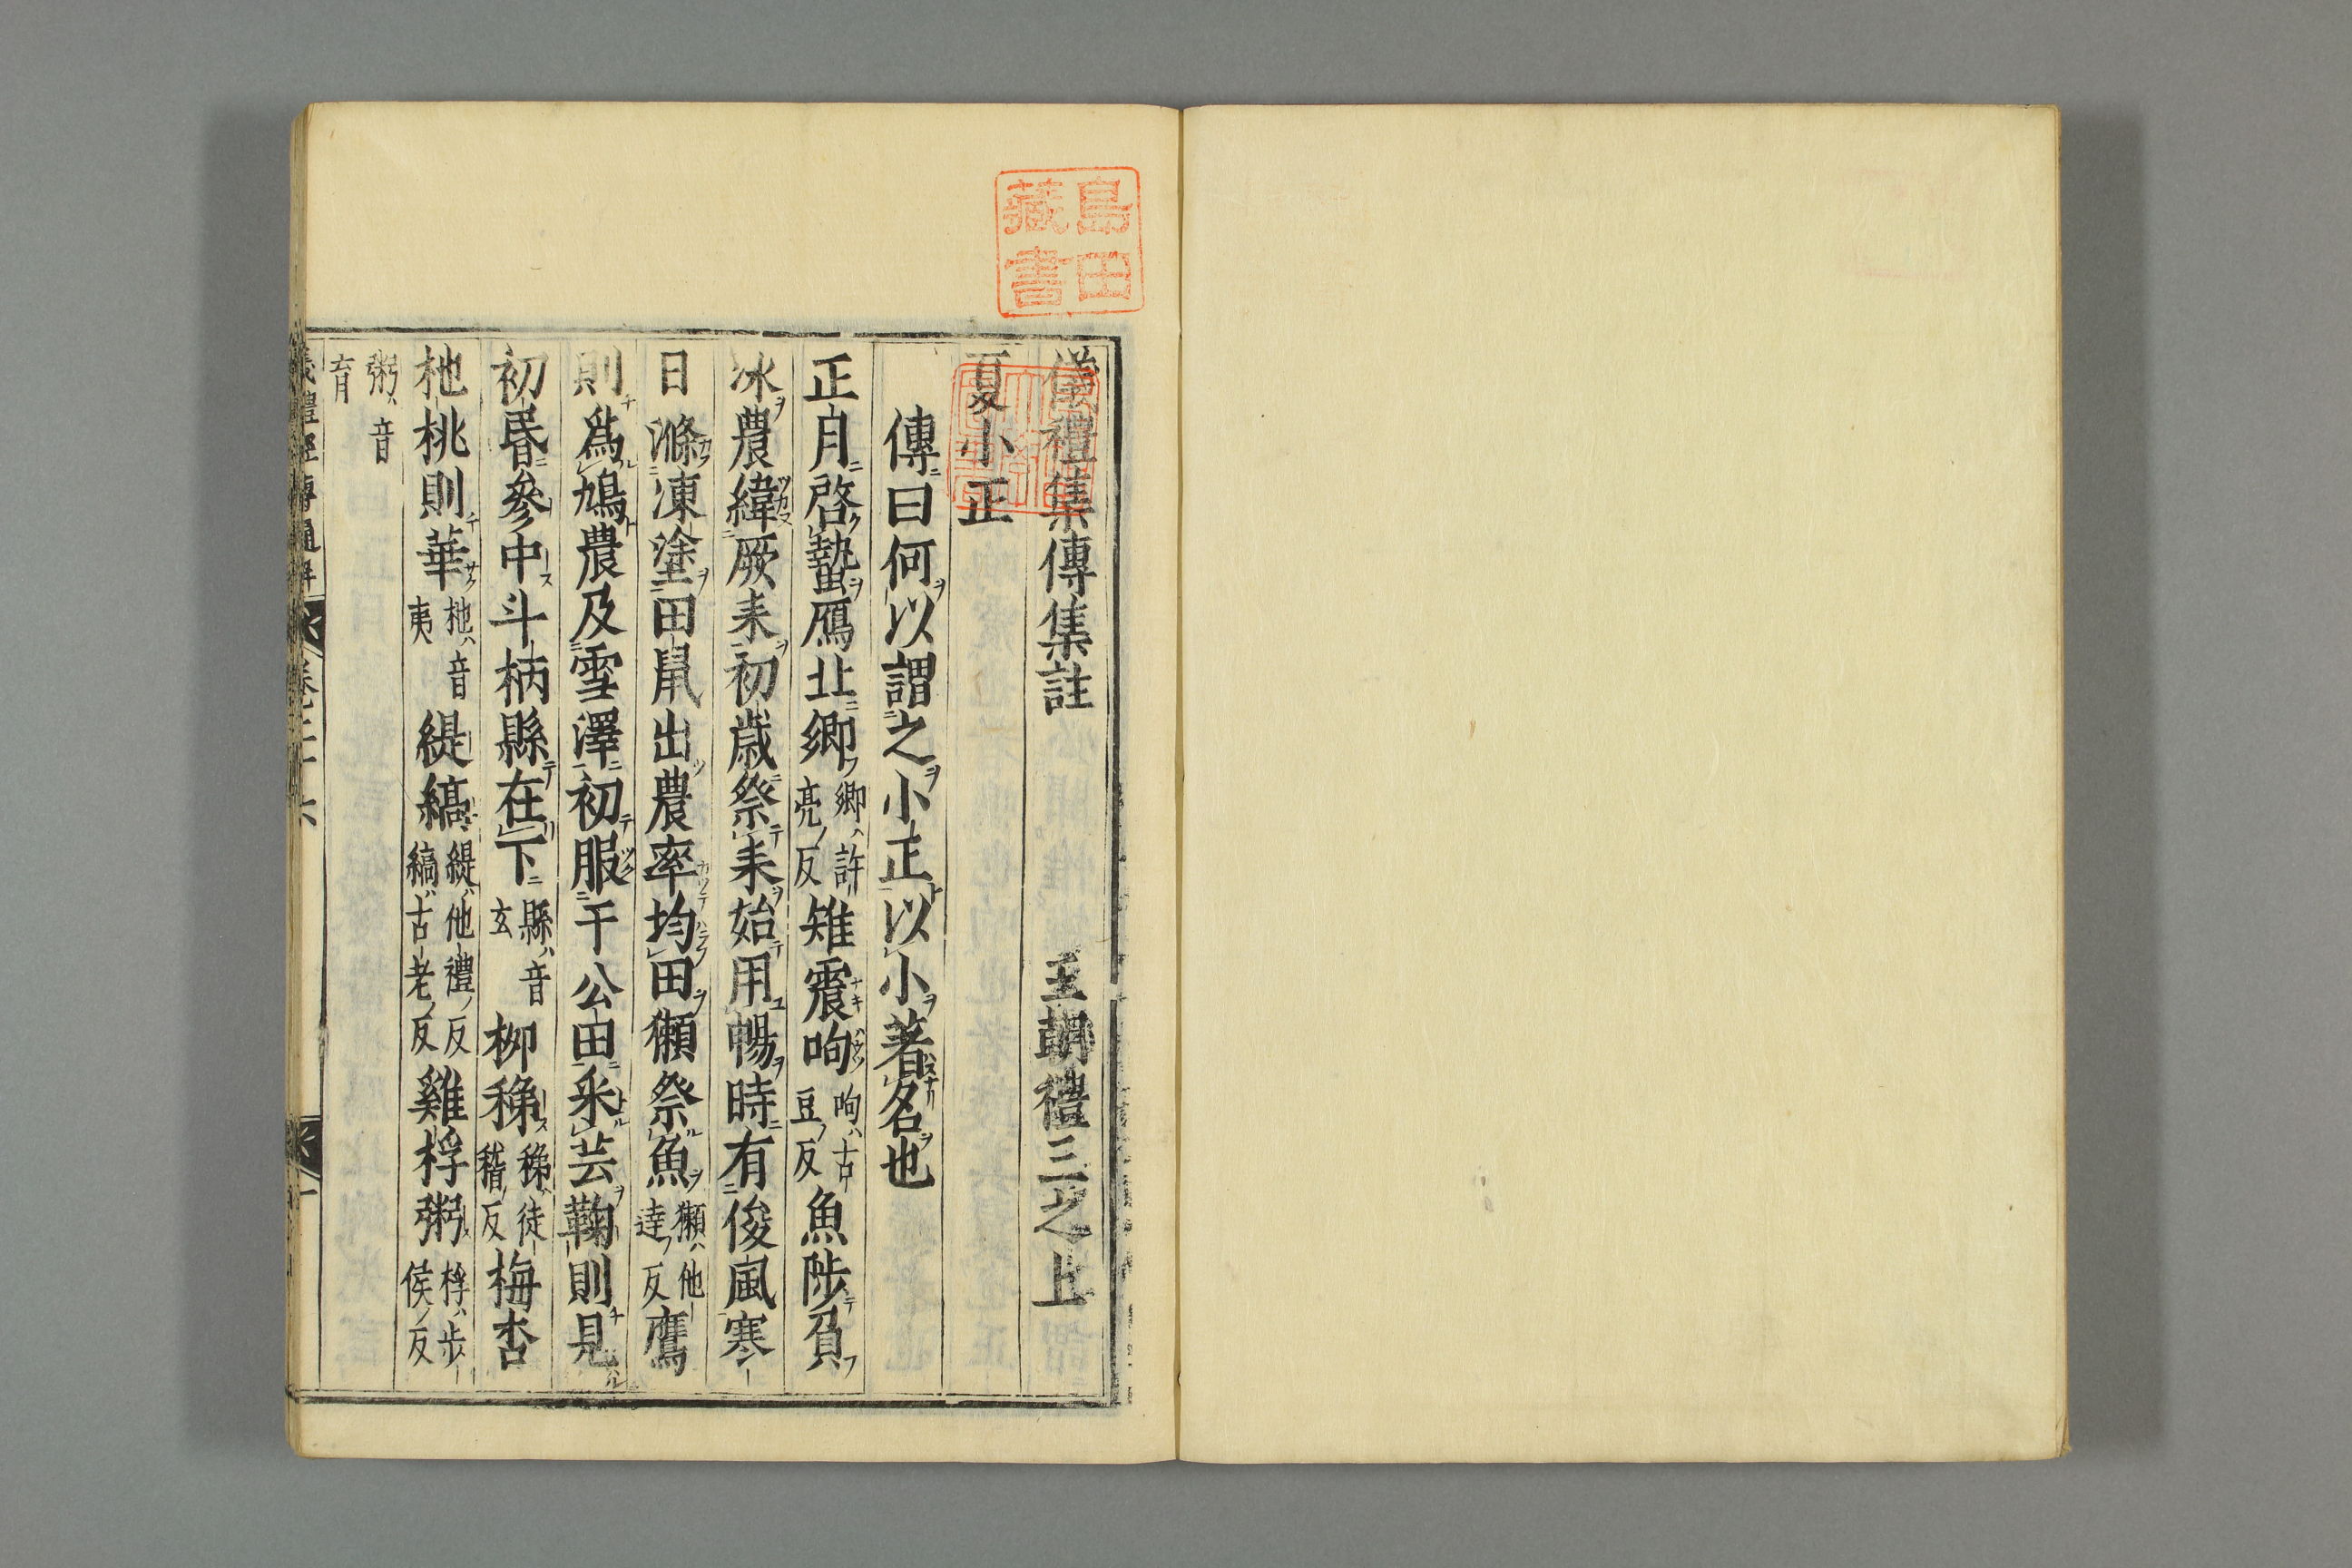 島田
藏書
儀禮集傳集註　王朝禮三之上
夏小正
傳曰何以謂之小正以小著名也
正月啓蟄鴈北鄉鄉ハ許亮ノ反雉震呴呴ハ古豆ノ反魚陟負
冰農緯厥耒初歲祭耒始用暢時有俊風寒
日滌凍塗田鼠出農率均田獺祭魚獺ハ他達ノ反鷹
則爲鳩農及雪澤初服于公田采芸鞠則見
初昬參中斗柄縣在下縣ハ音玄柳稊稊ハ徒稽ノ反梅杏
杝桃則華杝ハ音夷緹縞緹ハ他禮ノ反縞ハ古老ノ反雞桴粥桴ハ步侯ノ反
粥ハ音育
儀禮經傳通解　卷二十六